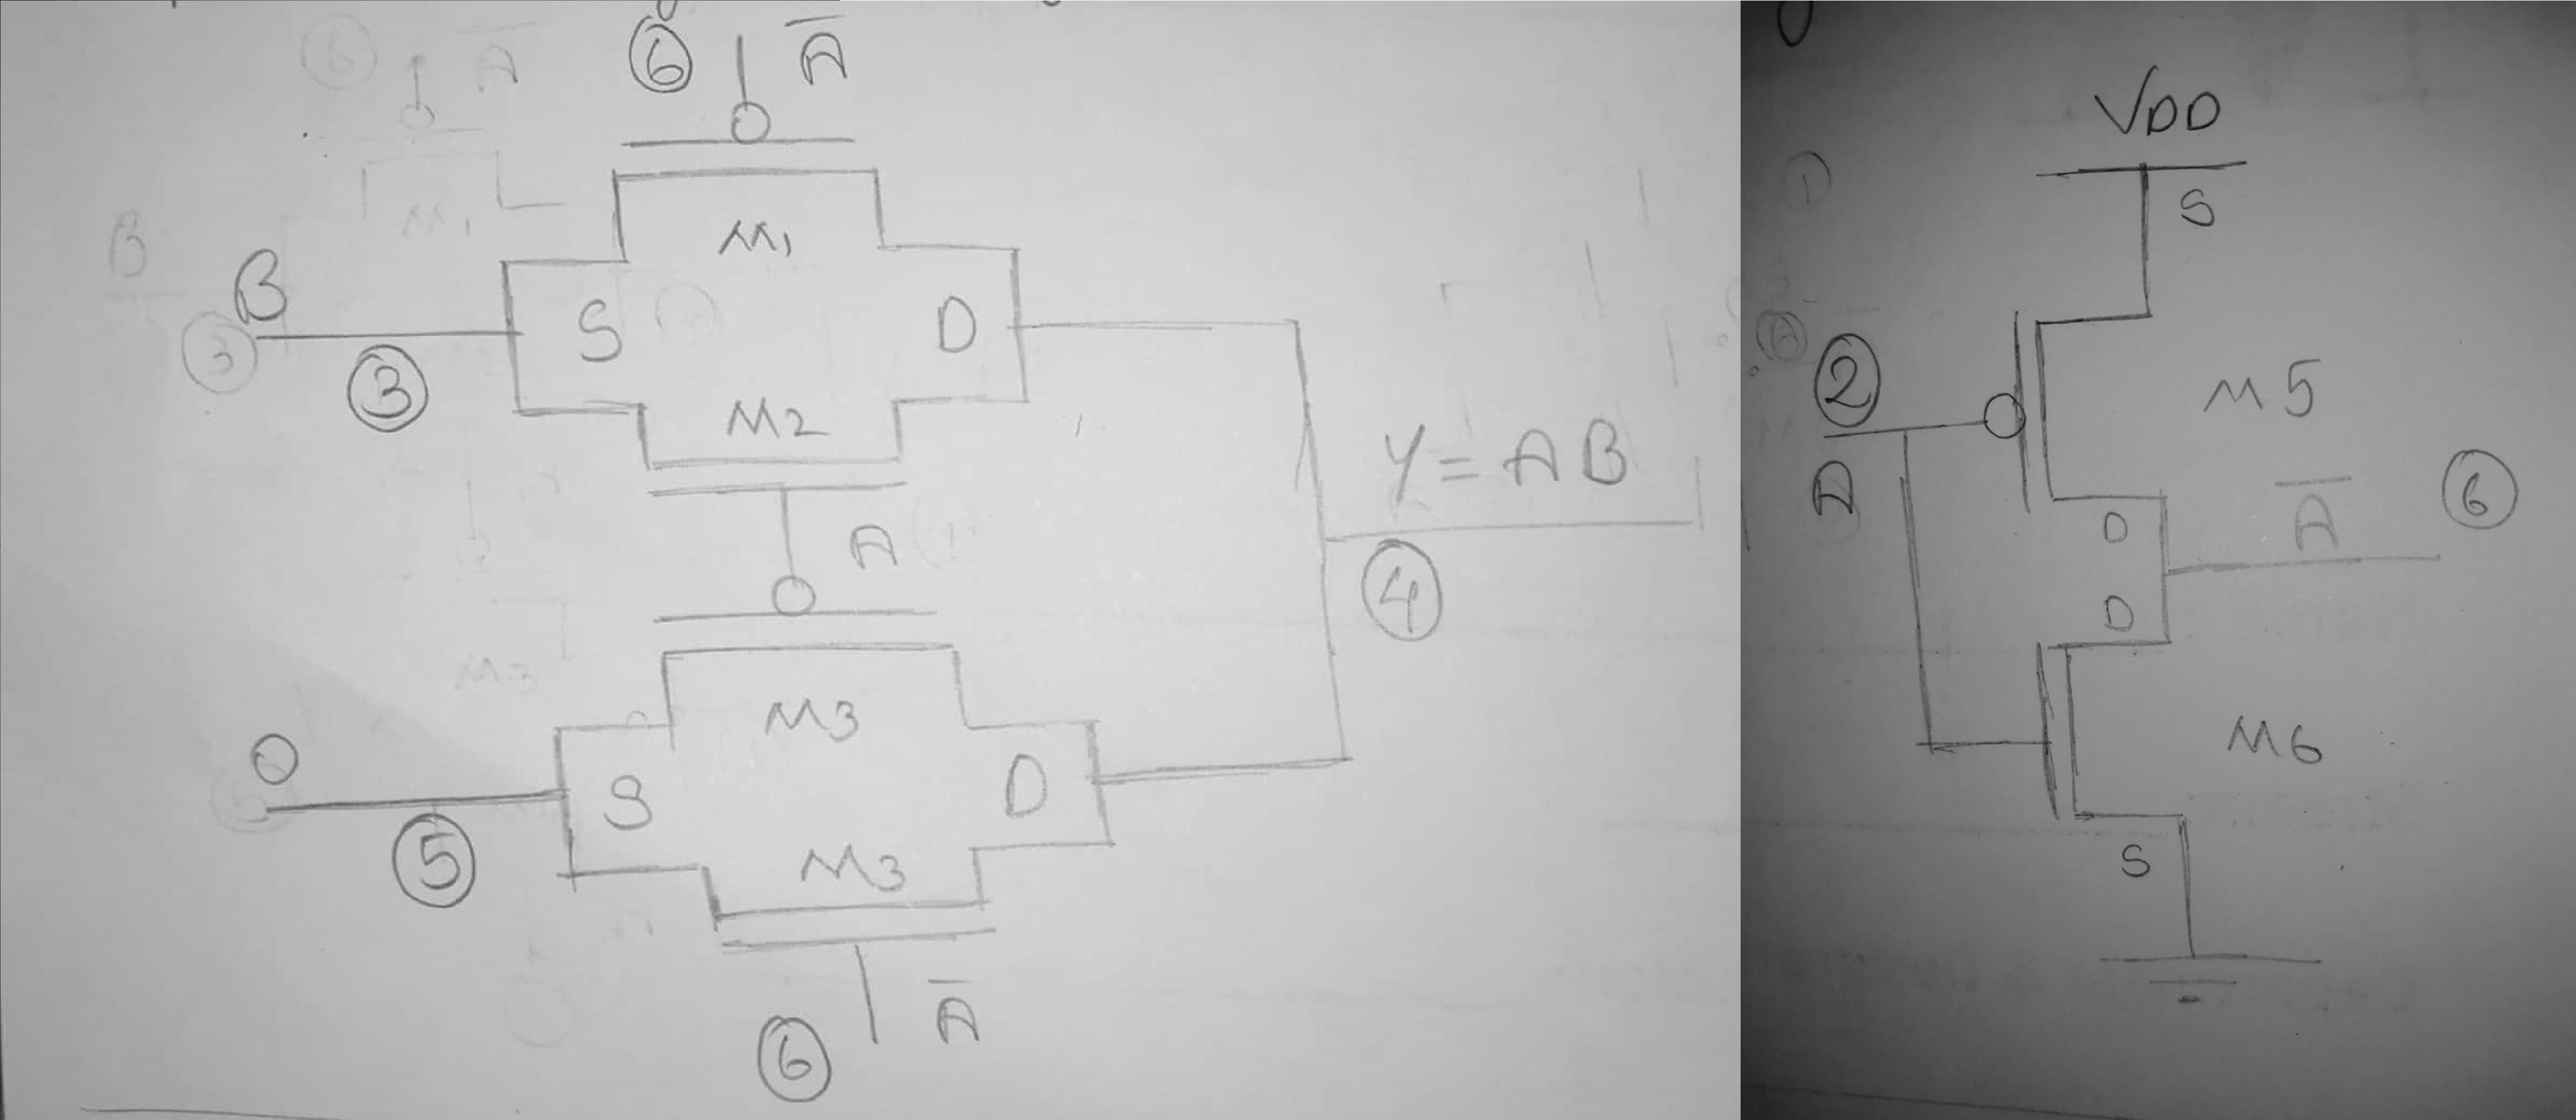 6 A̅
M1
B
3
S D
M2
Y = A B
A
4
M3
0
S D
5
M3
A̅
6
VDD
S
2
M5
A
D
A̅
6
D
M6
S